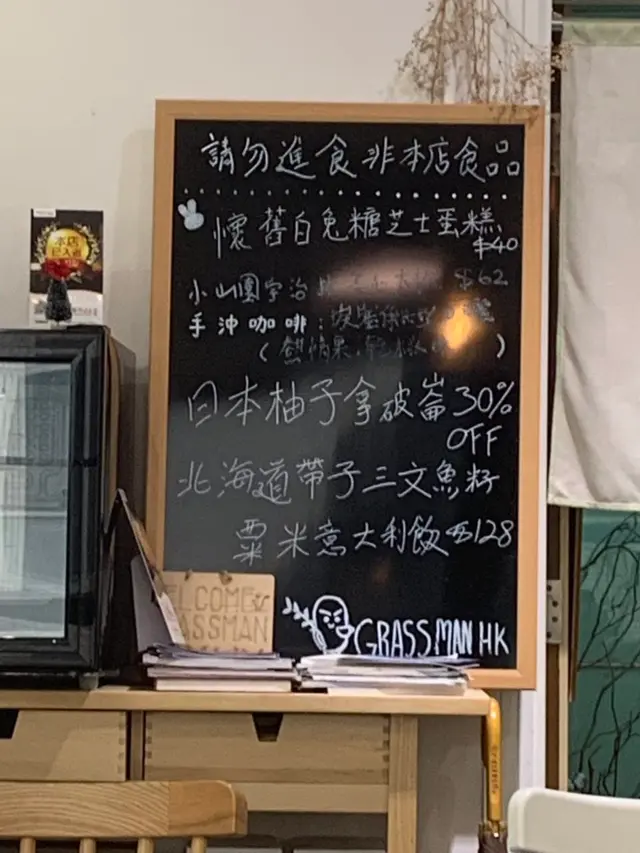 請勿進食非本店食品
懷舊白兔糖芝士蛋糕
$40
小山園宇治 $62
手沖咖啡：
（熱情果， ）
日本柚子拿破崙30%
OFF
北海道帶子三文魚籽
粟米意大利飯 $128
GRASSMAN HK
本店
已入選
ELCOME
ASSMAN